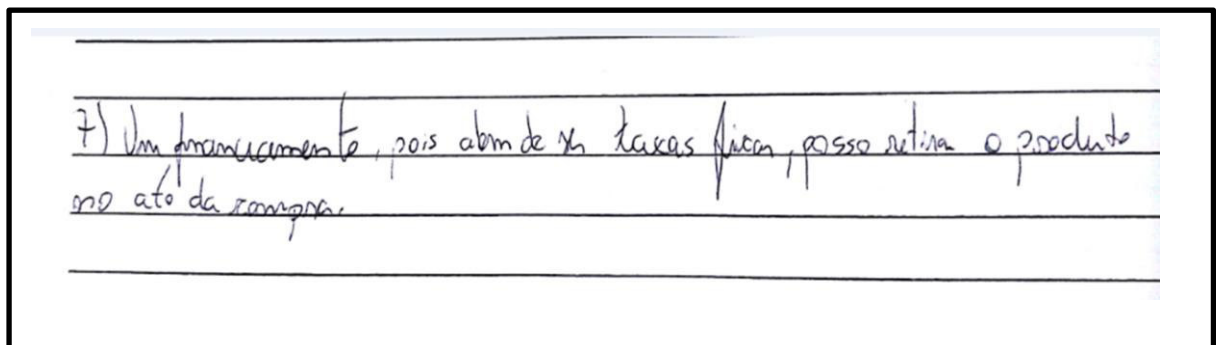 7) Um financiamento, pois alem de ser taxas fixas, posso retirar o produto
no ato da compra.